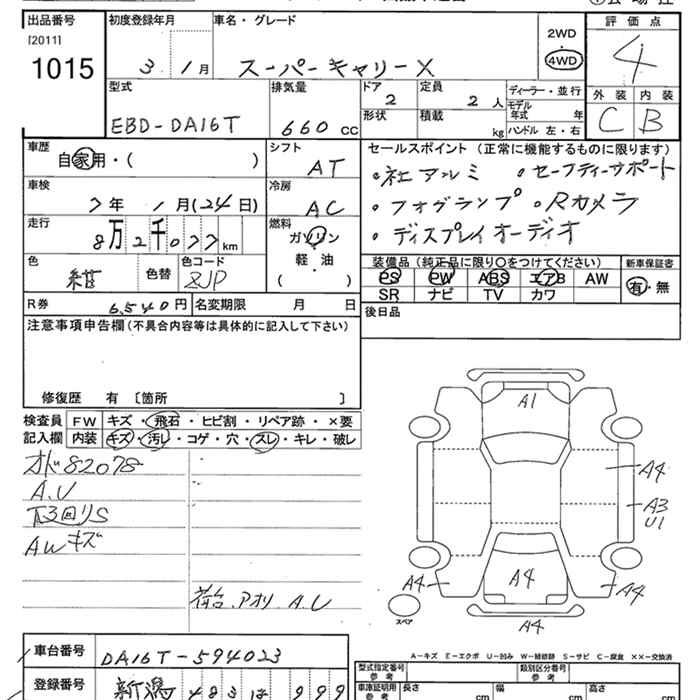 出品番号 初度登録年月 車名・グレード 評価点
[2011] 2WD
1015 3 1月 スーパーキャリー X 4WD 4
型式 排気量 ドア 定員 ディーラー・並行 外装 内装
2 2人 モデル年式 年
EBD-DA16T 660 CC 形状 積載 kg ハンドル 左・右 C B
車歴 シフト セールスポイント (正常に機能するものに限ります)
自家用・( ) AT ・社アルミ ・セーフティーサポート
車検 冷房 ・フォグランプ ・Rカメラ
7年 1月(24日) AC ・ディスプレイオーディオ
走行 燃料
8万2千077km ガソリン
色 色替 色コード 軽・油 装備品 (純正品に限り○をつけてください) 新車保証書
紺 ZJP ( ) PS PW ABS エアB AW 有・無
R券 6,540円 名変期限 月 日 SR ナビ TV カワ
注意事項申告欄(不具合内容等は具体的に記入して下さい) 後日品
修復歴 有 〔箇所 〕
検査員 FW キズ・飛石・ヒビ割・リペア跡・×要
記入欄 内装 キズ・汚レ・コゲ・穴・スレ・キレ・破レ
オド82078
A.U
下回りS
AWキズ
荷台.アオリ A.U
A1
A4
A3
U1
A4
A4 A4
A4
スペア
A-キズ E-エクボ U-凹み W-補修跡 S-サビ C-腐食 ××-交換済
車台番号 DA16T-594023 型式指定番号 参考 類別区分番号 参考
登録番号 新潟 483 999 車庫証明用 参考 長さ cm 幅 cm 高さ cm